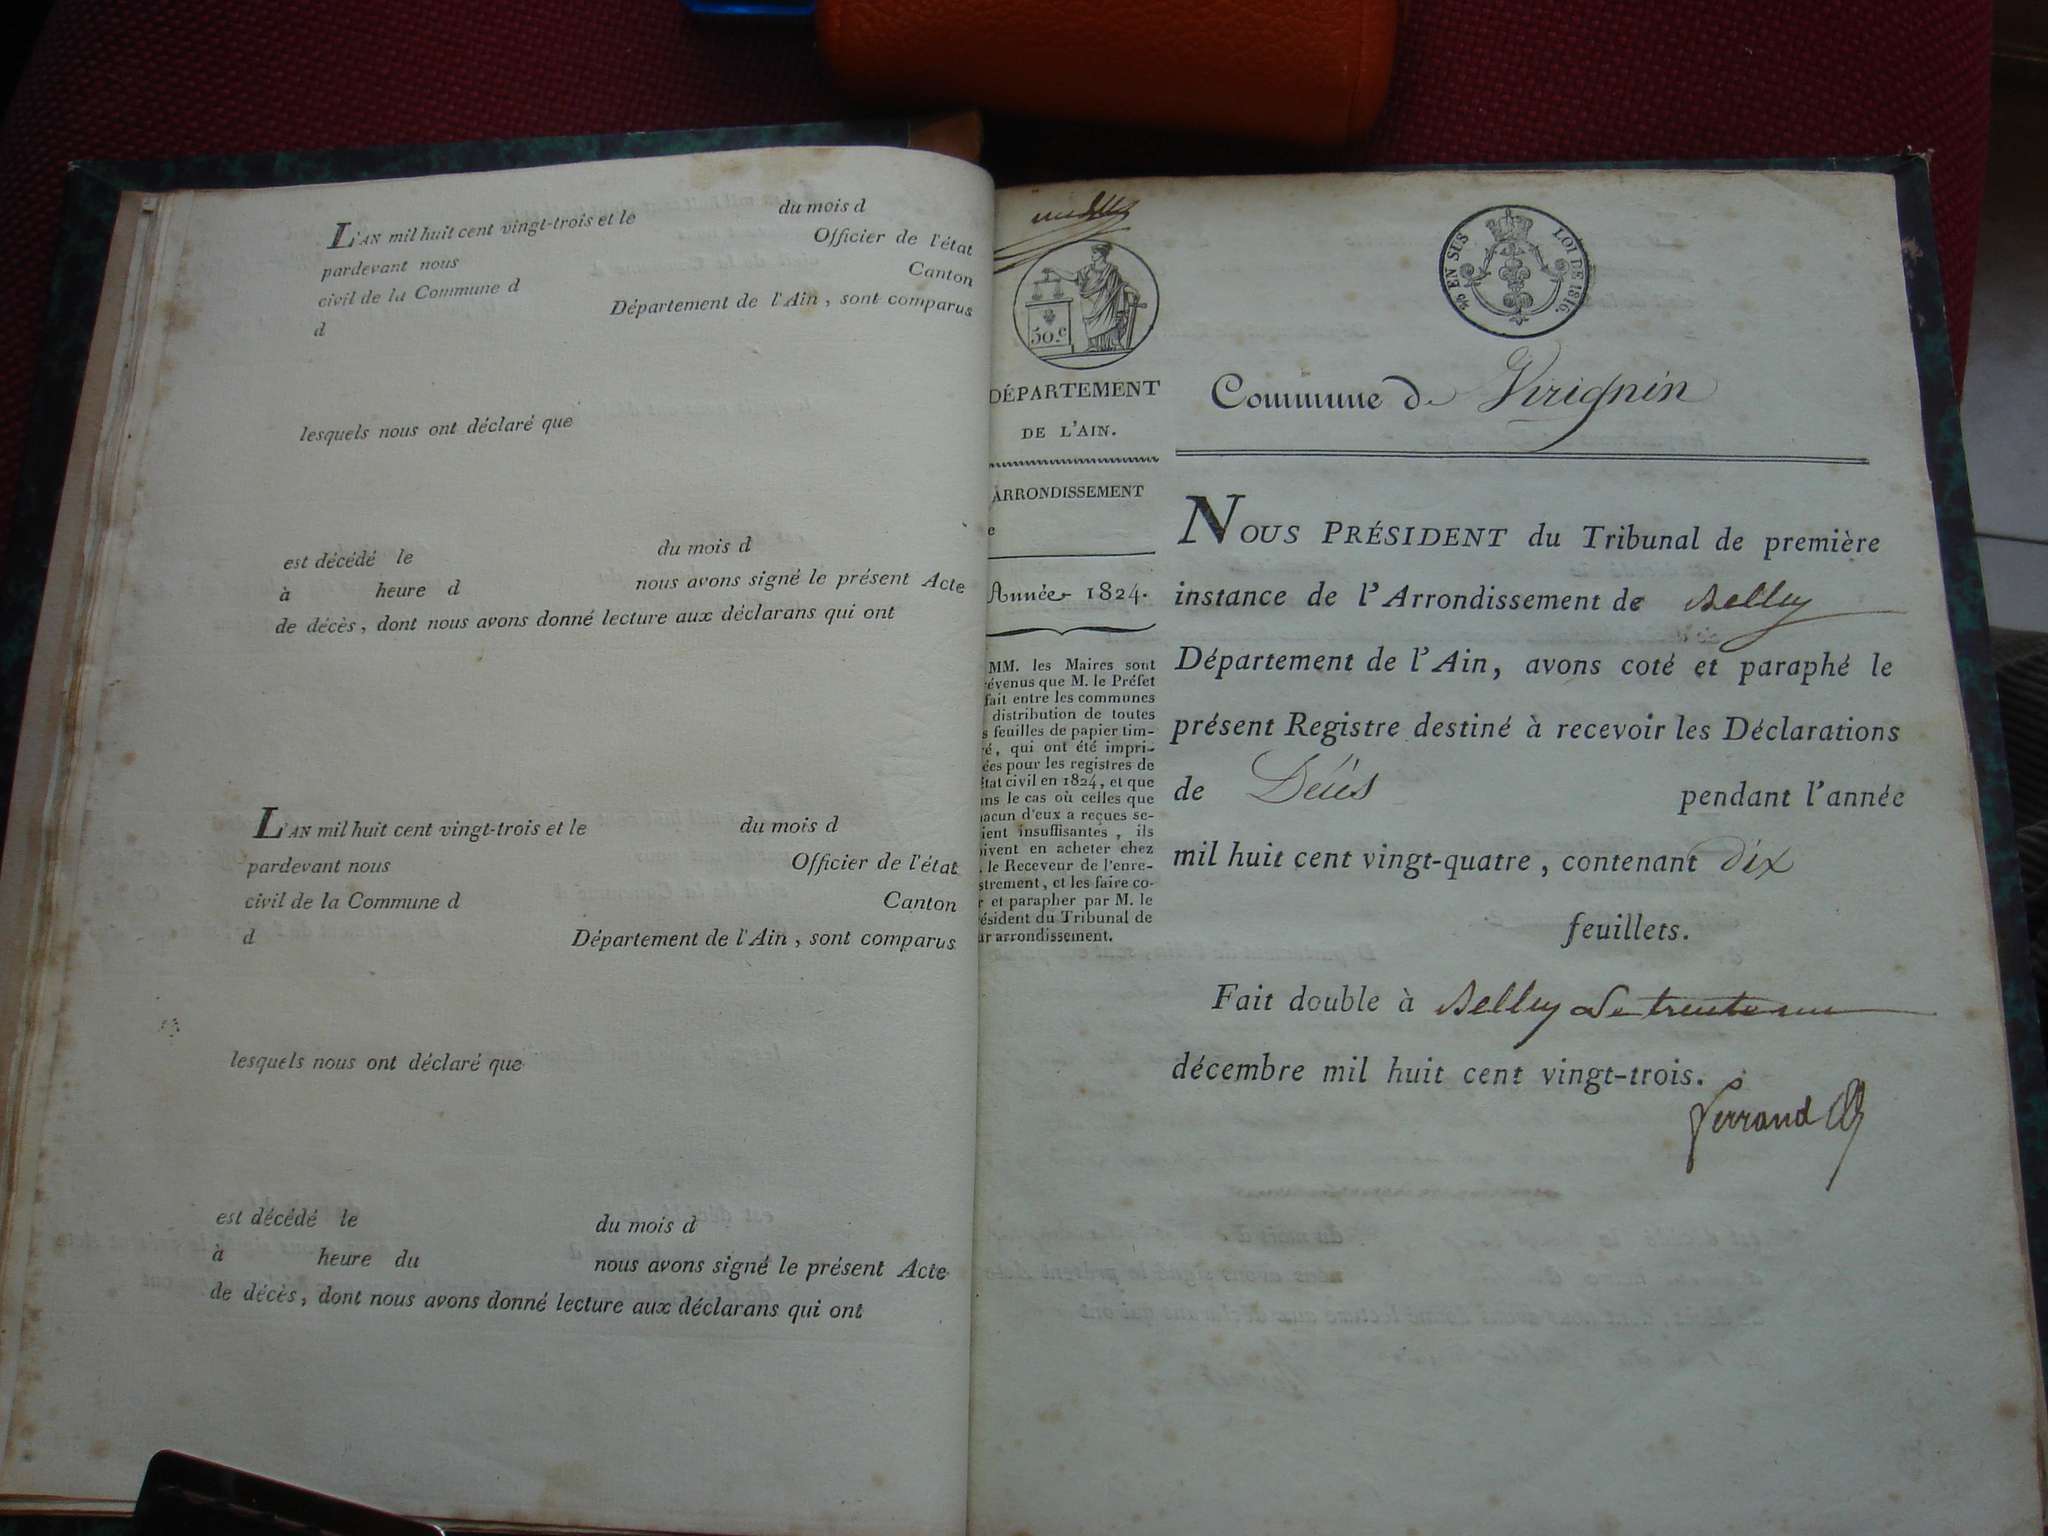 L'AN mil huit cent vingt-trois et le du mois d
pardevant nous Officier de l'état
civil de la Commune d Canton
d Département de l'Ain, sont comparus
lesquels nous ont déclaré que
est décédé le du mois d
à heure d nous avons signé le présent Acte
de décès, dont nous avons donné lecture aux déclarans qui ont
L'AN mil huit cent vingt-trois et le du mois d
pardevant nous Officier de l'état
civil de la Commune d Canton
d Département de l'Ain, sont comparus
lesquels nous ont déclaré que
est décédé le du mois d
à heure du nous avons signé le présent Acte
de décès, dont nous avons donné lecture aux déclarans qui ont
50.c
DÉPARTEMENT
DE L'AIN.
ARRONDISSEMENT
e
Année 1824.
MM. les Maires sont
révenus que M. le Préfet
fait entre les communes
distribution de toutes
s feuilles de papier tim-
ré, qui ont été impri-
ées pour les registres de
état civil en 1824, et que
ans le cas où celles que
hacun d'eux a reçues se-
ient insuffisantes, ils
oivent en acheter chez
. le Receveur de l'enre-
strement, et les faire co-
r et parapher par M. le
résident du Tribunal de
ur arrondissement.
EN SUS LOI DE 1816.
Commune de Virignin
NOUS PRÉSIDENT du Tribunal de première
instance de l'Arrondissement de Belley
Département de l'Ain, avons coté et paraphé le
présent Registre destiné à recevoir les Déclarations
de Décès pendant l'année
mil huit cent vingt-quatre, contenant dix
feuillets.
Fait double à Belley le trente un
décembre mil huit cent vingt-trois.
Ferrand